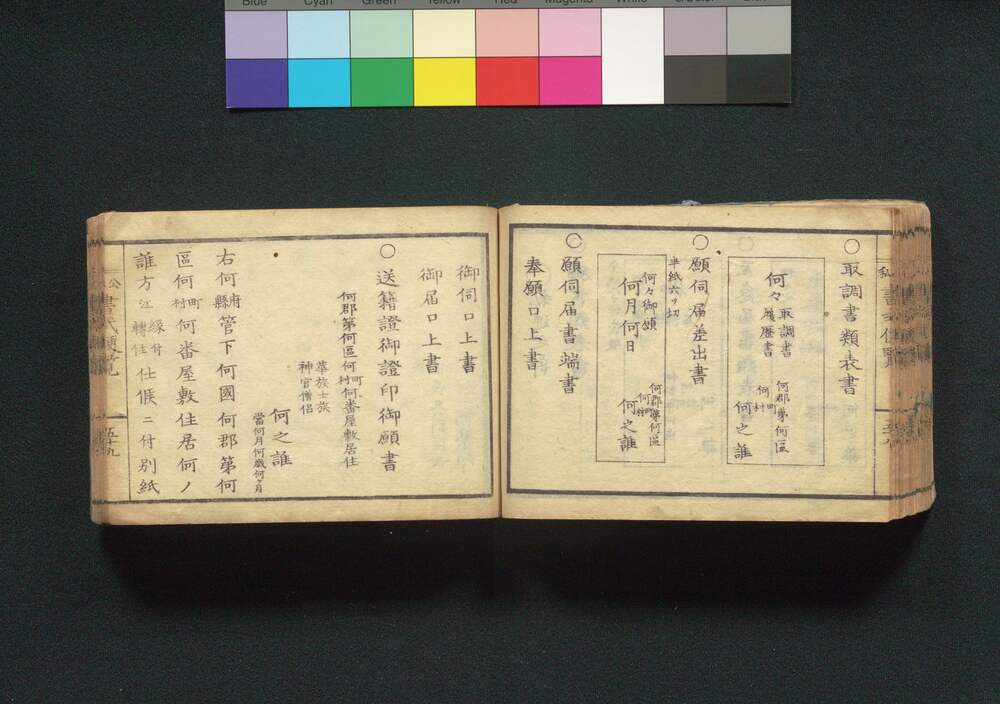 Blue Cyan Green Yellow Red Magenta White 3/Color Black
○取調書類表書
何々 取調書
履歴書
何郡第何區
何町村
何之誰
○願伺届差出書
半紙六ツ切
何々御願
何月何日
何郡第何區
何町村
何之誰
○願伺届書端書
奉願口上書
御伺口上書
御届口上書
○送籍證御證印御願書
何郡第何區何町村何番屋敷居住
華族士族
神官僧侶
何之誰
當何月何歳何ヶ月
右何府縣管下何國何郡第何
區何町村何番屋敷住居何ノ
誰方江縁付轉住仕候ニ付別紙
公
五十九